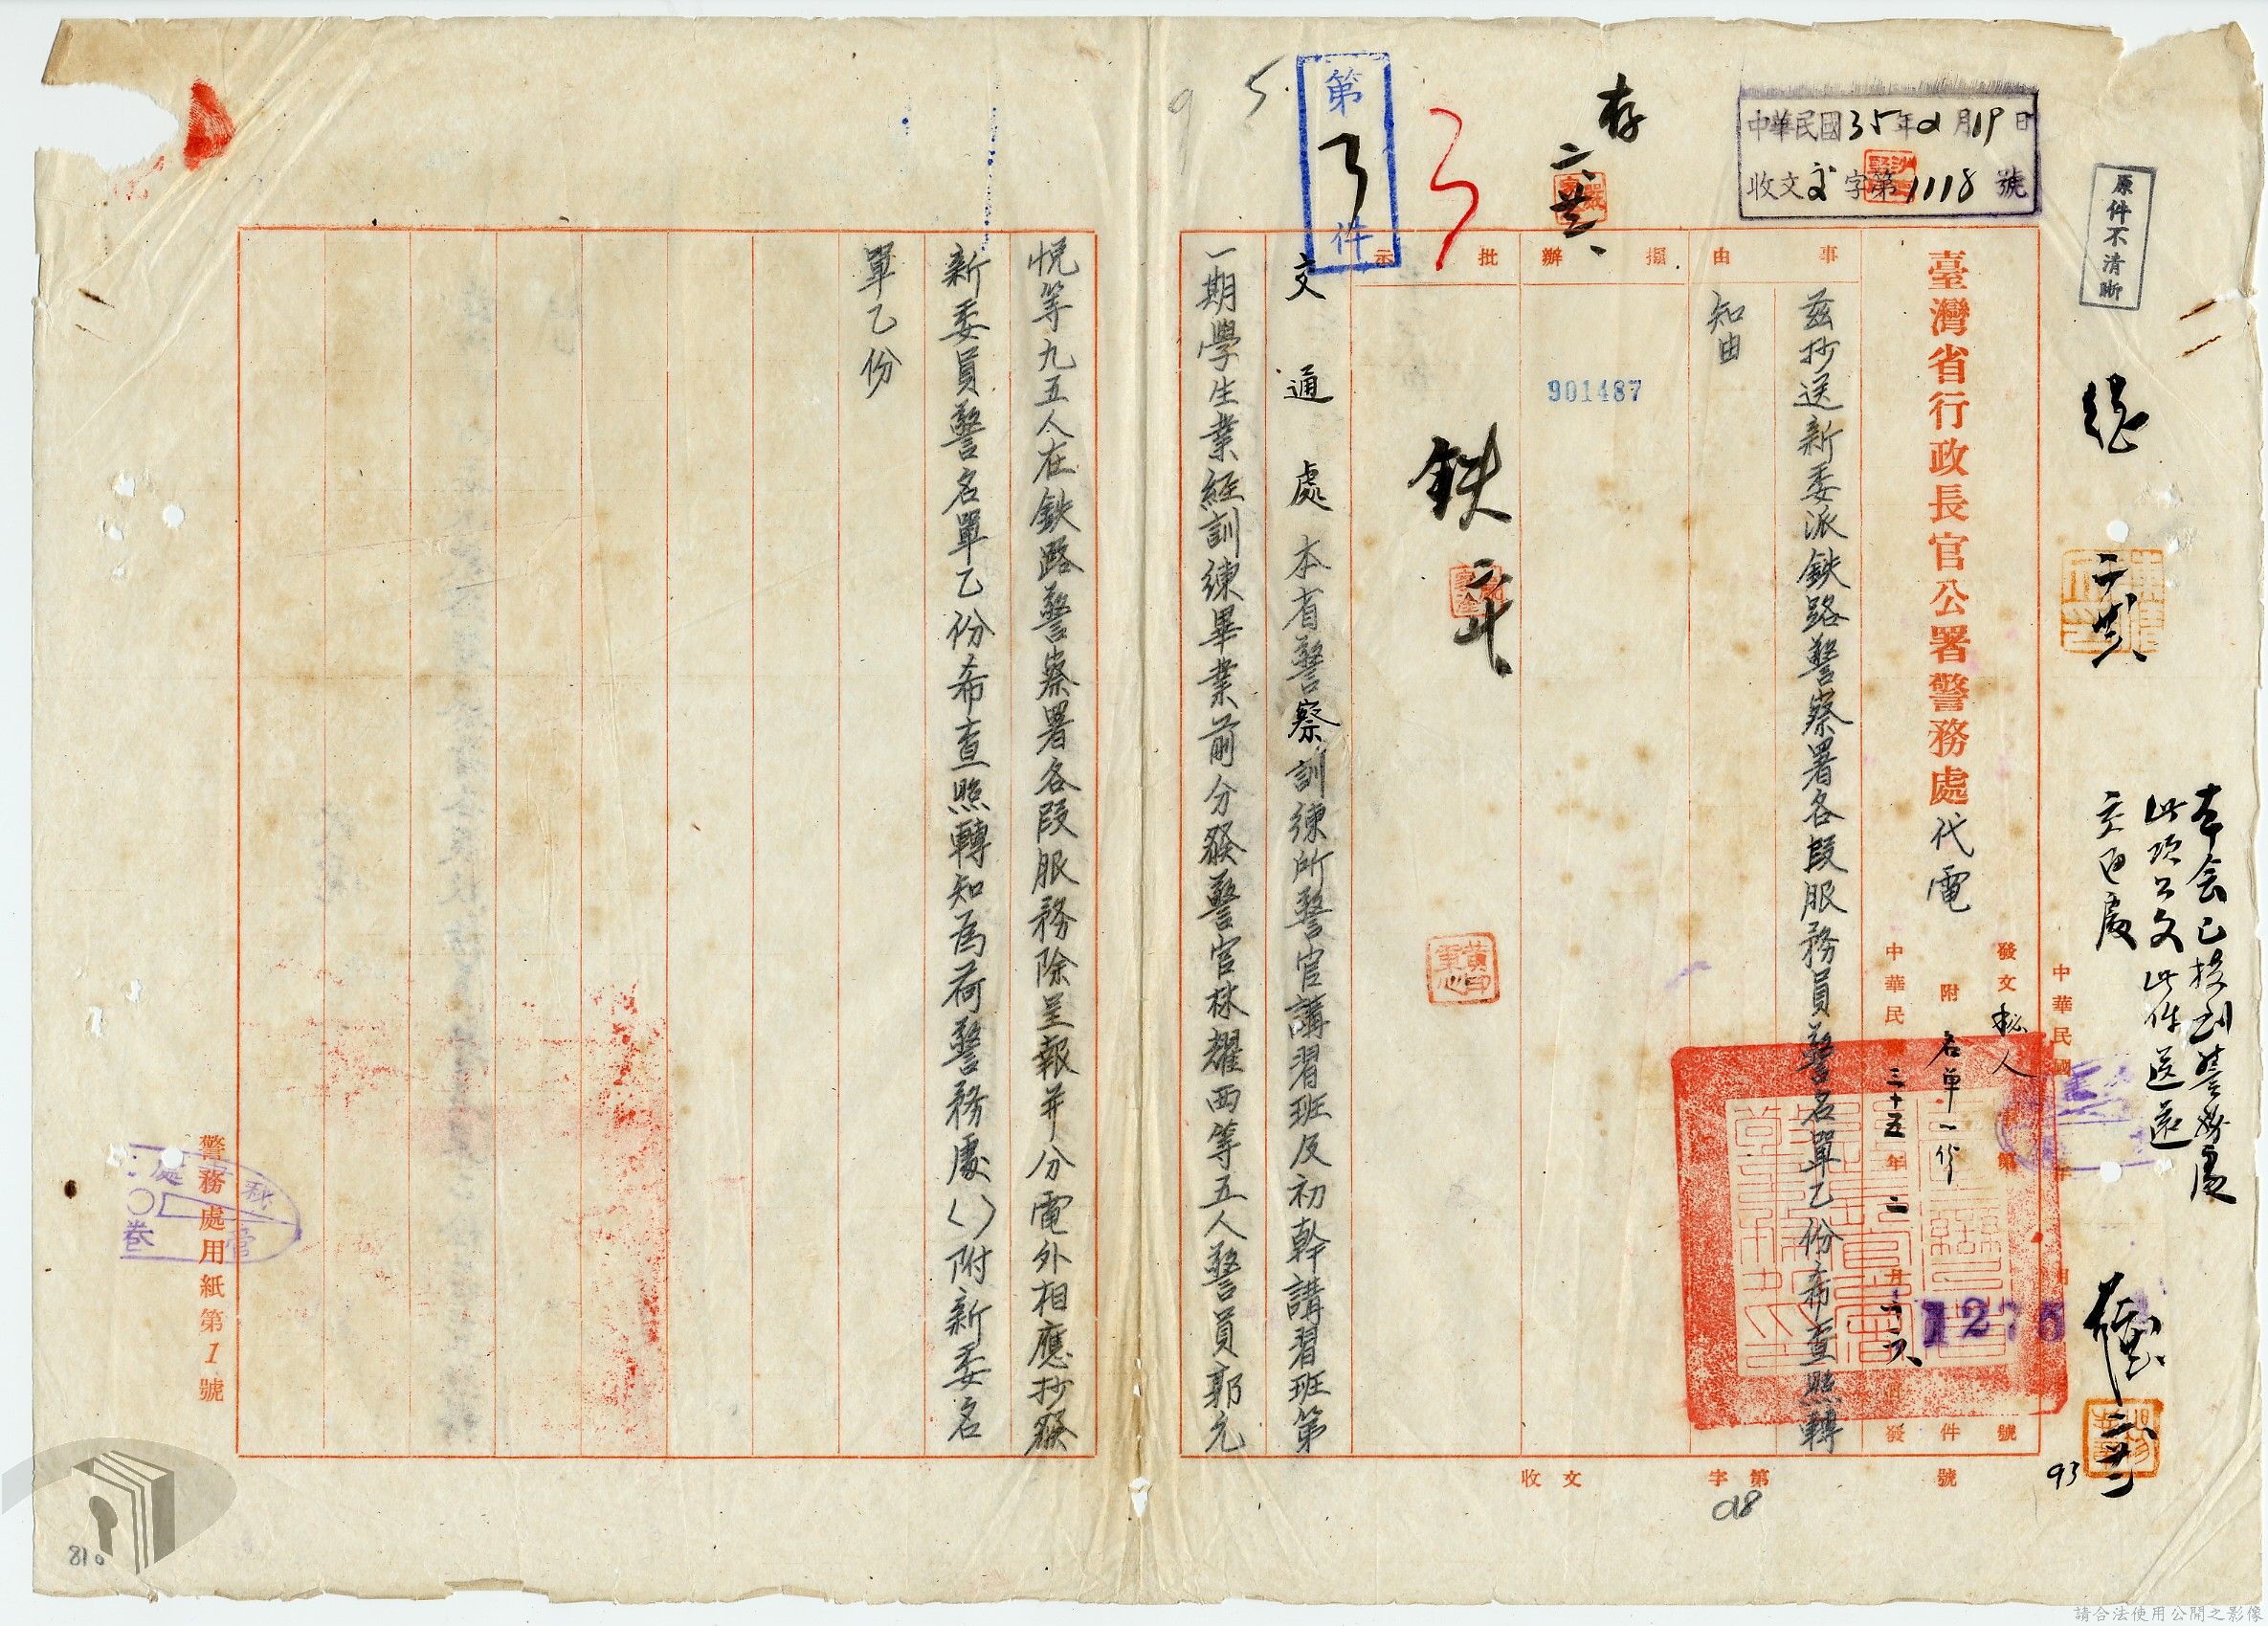 原件不清晰
中華民國35年2月19日
收文交字第1118號
本会已接到警務處
此項公文此件送還
交通處
臺灣省行政長官公署警務處代電
發文秘人
第
號
附名單一份
件
中華民國三十五年二月十六日發
1275
事由
茲抄送新委派鉄路警察署各段服務員警名單乙份希查照轉
知由
擬辦
901487
存
批示
鉄
第
件
交通處本省警察訓練所警官講習班及初幹講習班第
一期學生業經訓練畢業前分發警官林耀西等五人警員郭允
悦等九五人在鉄路警察署各段服務除呈報并分電外相應抄發
新委員警名單乙份希查照轉知為荷警務處( )附新委名
單乙份
收文
字第
號
93
警務處用紙第1號
810
請合法使用公開之影像